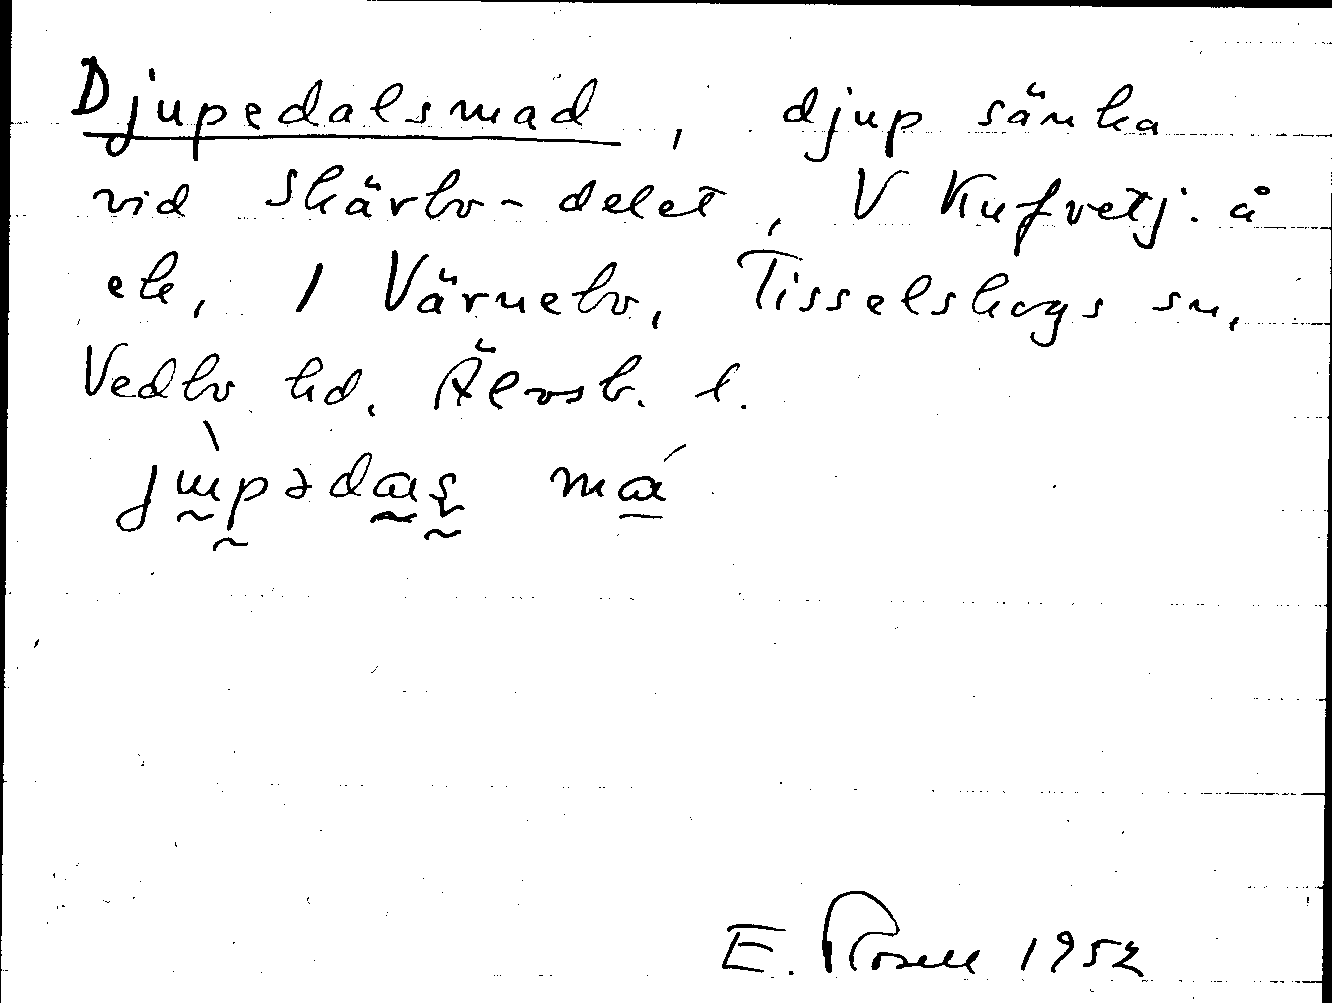 Djupedalsmad, djup sänka
vid Skärbo-delet, V Kufvetj. å
ek, 1 Värnebo, Tisselskogs sn,
Vedbo hd. Älvsb. l.
E. Rosell 1952